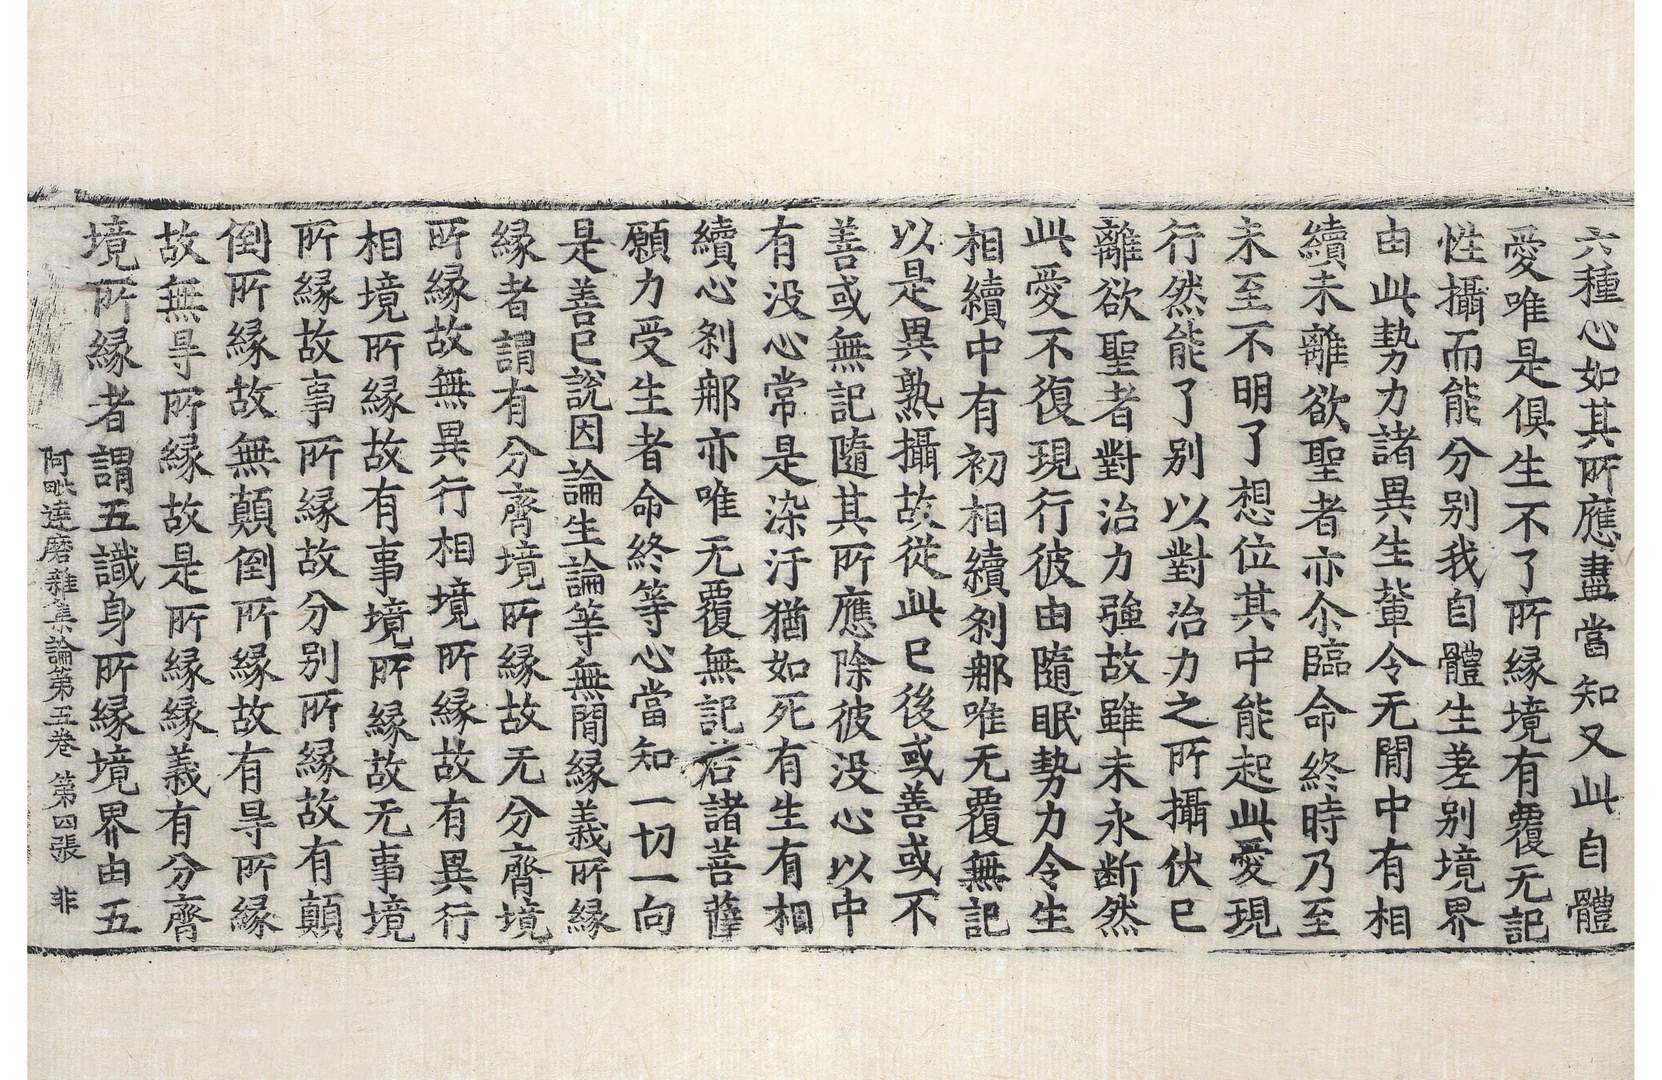 六種心如其所應盡當知又此自體
愛唯是俱生不了所縁境有覆无記
性攝而能分別我自體生差別境界
由此勢力諸異生輩令无間中有相
續未離欲聖者亦尒臨命終時乃至
未至不明了想位其中能起此愛現
行然能了別以對治力之所攝伏已
離欲聖者對治力強故雖未永断然
此愛不復現行彼由隨眠勢力令生
相續中有初相續刹那唯无覆無記
以是異熟攝故從此已後或善或不
善或無記隨其所應除彼没心以中
有没心常是染汙猶如死有生有相
續心刹那亦唯无覆無記若諸菩薩
願力受生者命終等心當知一切一向
是善已說因論生論等無間縁義所縁
縁者謂有分齊境所縁故无分齊境
所縁故無異行相境所縁故有異行
相境所縁故有事境所縁故无事境
所縁故事所縁故分別所縁故有顛
倒所縁故無顛倒所縁故有㝵所縁
故無㝵所縁故是所縁縁義有分齊
境所縁者謂五識身所縁境界由五
阿毗達磨雜集論第五卷 第四張 非